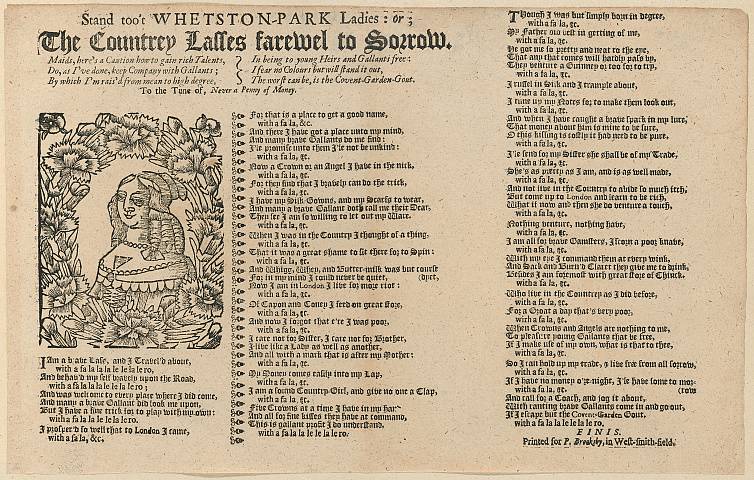 Stand too't WHETSTON-PARK Ladies: or;
The Countrey Lasses farewel to Sorrow.
Maids, here's a Caution how to gain rich Talents,
Do, as I've done, keep Company with Gallants;
By which I'm rais'd from mean to high degree,
In being to young Heirs and Gallants free:
I fear no Colours but will stand it out,
The worst can be, is the Covent-Garden-Gout.
To the Tune of, Never a Penny of Money.
I Am a brave Lass, and I Travel'd about,
with a fa la la la le le la le ro,
And behav'd my self bravely upon the Road,
with a fa la la la le le la le ro;
And was welcome to every place where I did come,
And many a brave Gallant did look me upon,
But I have a fine trick for to play with my own:
with a fa la la la le le la le ro.
I prosper'd so well that to London I came,
with a fa la, &c,
For that is a place to get a good name,
with a fa la, &c.
And there I have got a place unto my mind,
And many brave Gallants do me find:
I'le promise unto them I'le not be unkind:
with a fa la, &c.
Now a Crown or an Angel I have in the nick,
with a fa la, &c.
For they find that I bravely can do the trick,
with a fa la, &c.
I have my Silk Gowns, and my Scarfs to wear,
And many a brave Gallant doth call me their Dear,
They see I am so willing to let out my Ware.
with a fa la, &c.
When I was in the Country I thought of a thing,
with a fa la, &c.
That it was a great shame to sit there for to Spin:
with a fa la, &c.
And Whigg, Whey, and Butter-milk was but course
For in my mind I could never be quiet, (dyet,
Now I am in London I live for more riot:
with a fa la, &c.
Of Capon and Coney I feed on great store,
with a fa la, &c.
And now I forgot that e're I was poor,
with a fa la, &c.
I care not for Sister, I care not for Brother,
I live like a Lady as well as another,
And all with a mark that is after my Mother:
with a fa la, &c.
My Money comes easily into my Lap,
with a fa la, &c.
I am a sound Country-Girl, and give no one a Clap,
with a fa la, &c.
Five Crowns at a time I have in my hand
And all for fine kisses they have at command,
This is gallant profit I do understand.
with a fa la la la le le la le ro.
Though I was but simply born in degree,
with a fa la, &c.
My Father did well in getting of me,
with a fa la, &c.
He got me so pretty and neat to the eye,
That any that comes will hardly pass by,
They venture a Guinney or too for to try,
with a fa la, &c.
I russel in Silk and I trample about,
with a fa la, &c.
I tune up my Notes for to make them look out,
with a fa la, &c.
And when I have caught a brave spark in my lure,
That money about him is mine to be sure,
O this kissing is costly it had need to be pure.
with a fa la, &c.
I'le send for my Sister she shall be of my Trade,
with a fa la, &c.
She's as pretty as I am, and is as well made,
with a fa la, &c.
And not live in the Country to abide so much itch,
But come up to London and learn to be rich,
What if now and then she do venture a touch,
with a fa la, &c.
Nothing venture, nothing have,
with a fa la, &c.
I am all for brave Gamsters, I scorn a poor knave,
with a fa la, &c.
With my eye I command them at every wink,
And Sack and Burn'd Claret they give me to drink,
Besides I am foremost with great store of Chinck.
with a fa la, &c.
Who live in the Country as I did before,
with a fa la, &c.
For a Groat a day that's very poor,
with a fa la, &c.
When Crowns and Angels are nothing to me,
To pleasure young Gallants that be free,
If I make use of my own, what is that to thee,
with a fa la, &c.
So I can hold up my trade, I live free from all sorrow,
with a fa la, &c.
If I have no money o're-night, I'se have some to mor-
with a fa la, &c. (row
And call for a Coach, and jog it about,
With ranting brave Gallants come in and go out,
If I scape but the Covent-Garden Gout.
with a fa la la la le le la le ro.
FINIS.
Printed for P. Brooksby, in West-smith-field.